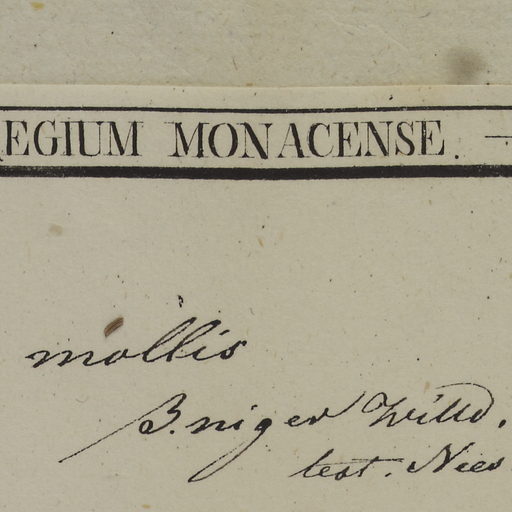 REGIUM MONACENSE.
mollis
β. niger Willd.
test. Nees